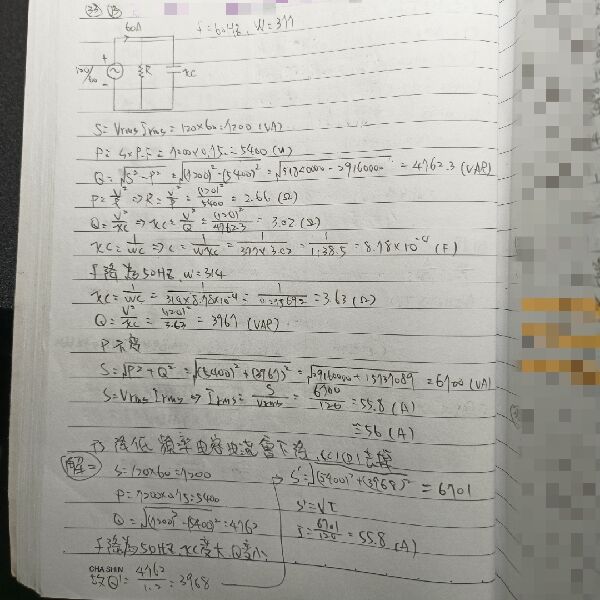 60A
f=60Hz, W=377
120/60
R
xc
S=VrmsIrms=120×60=7200 (VA)
P=S×P.F=7200×0.75=5400 (W)
Q=√S²-P²=√(7200)²-(5400)²=√51840000-29160000=4762.3 (VAR)
P=V²/R⇒R=V²/P=(120)²/5400=2.66 (Ω)
Q=V²/xc⇒xc=V²/Q=(120)²/4762.3=3.02 (Ω)
xc=1/wc⇒c=1/wxc=1/377×3.02=1/1138.5=8.78×10⁻⁴ (F)
f降為50HZ w=314
xc=1/wc=1/314×8.78×10⁻⁴=3.63 (Ω)
Q=V²/xc=(120)²/3.63=3967 (VAR)
P不變
S=√P²+Q²=√(5400)²+(3967)²=√29160000+15737089=6700 (VA)
S=VrmsIrms⇒Irms=S/Vrms=6700/120=55.8 (A)
≒56 (A)
降低頻率電容電流會下降
解=
S=120×60=7200
P=7200×0.75=5400
Q=√(7200)²-(5400)²=4762
f降為50HZ xc變大 Q變小
CHA SHIN
故Q'=4762/1.2=3968
S'=√(5400)²+(3968)²=6701
S'=VI
I=6701/120=55.8 (A)